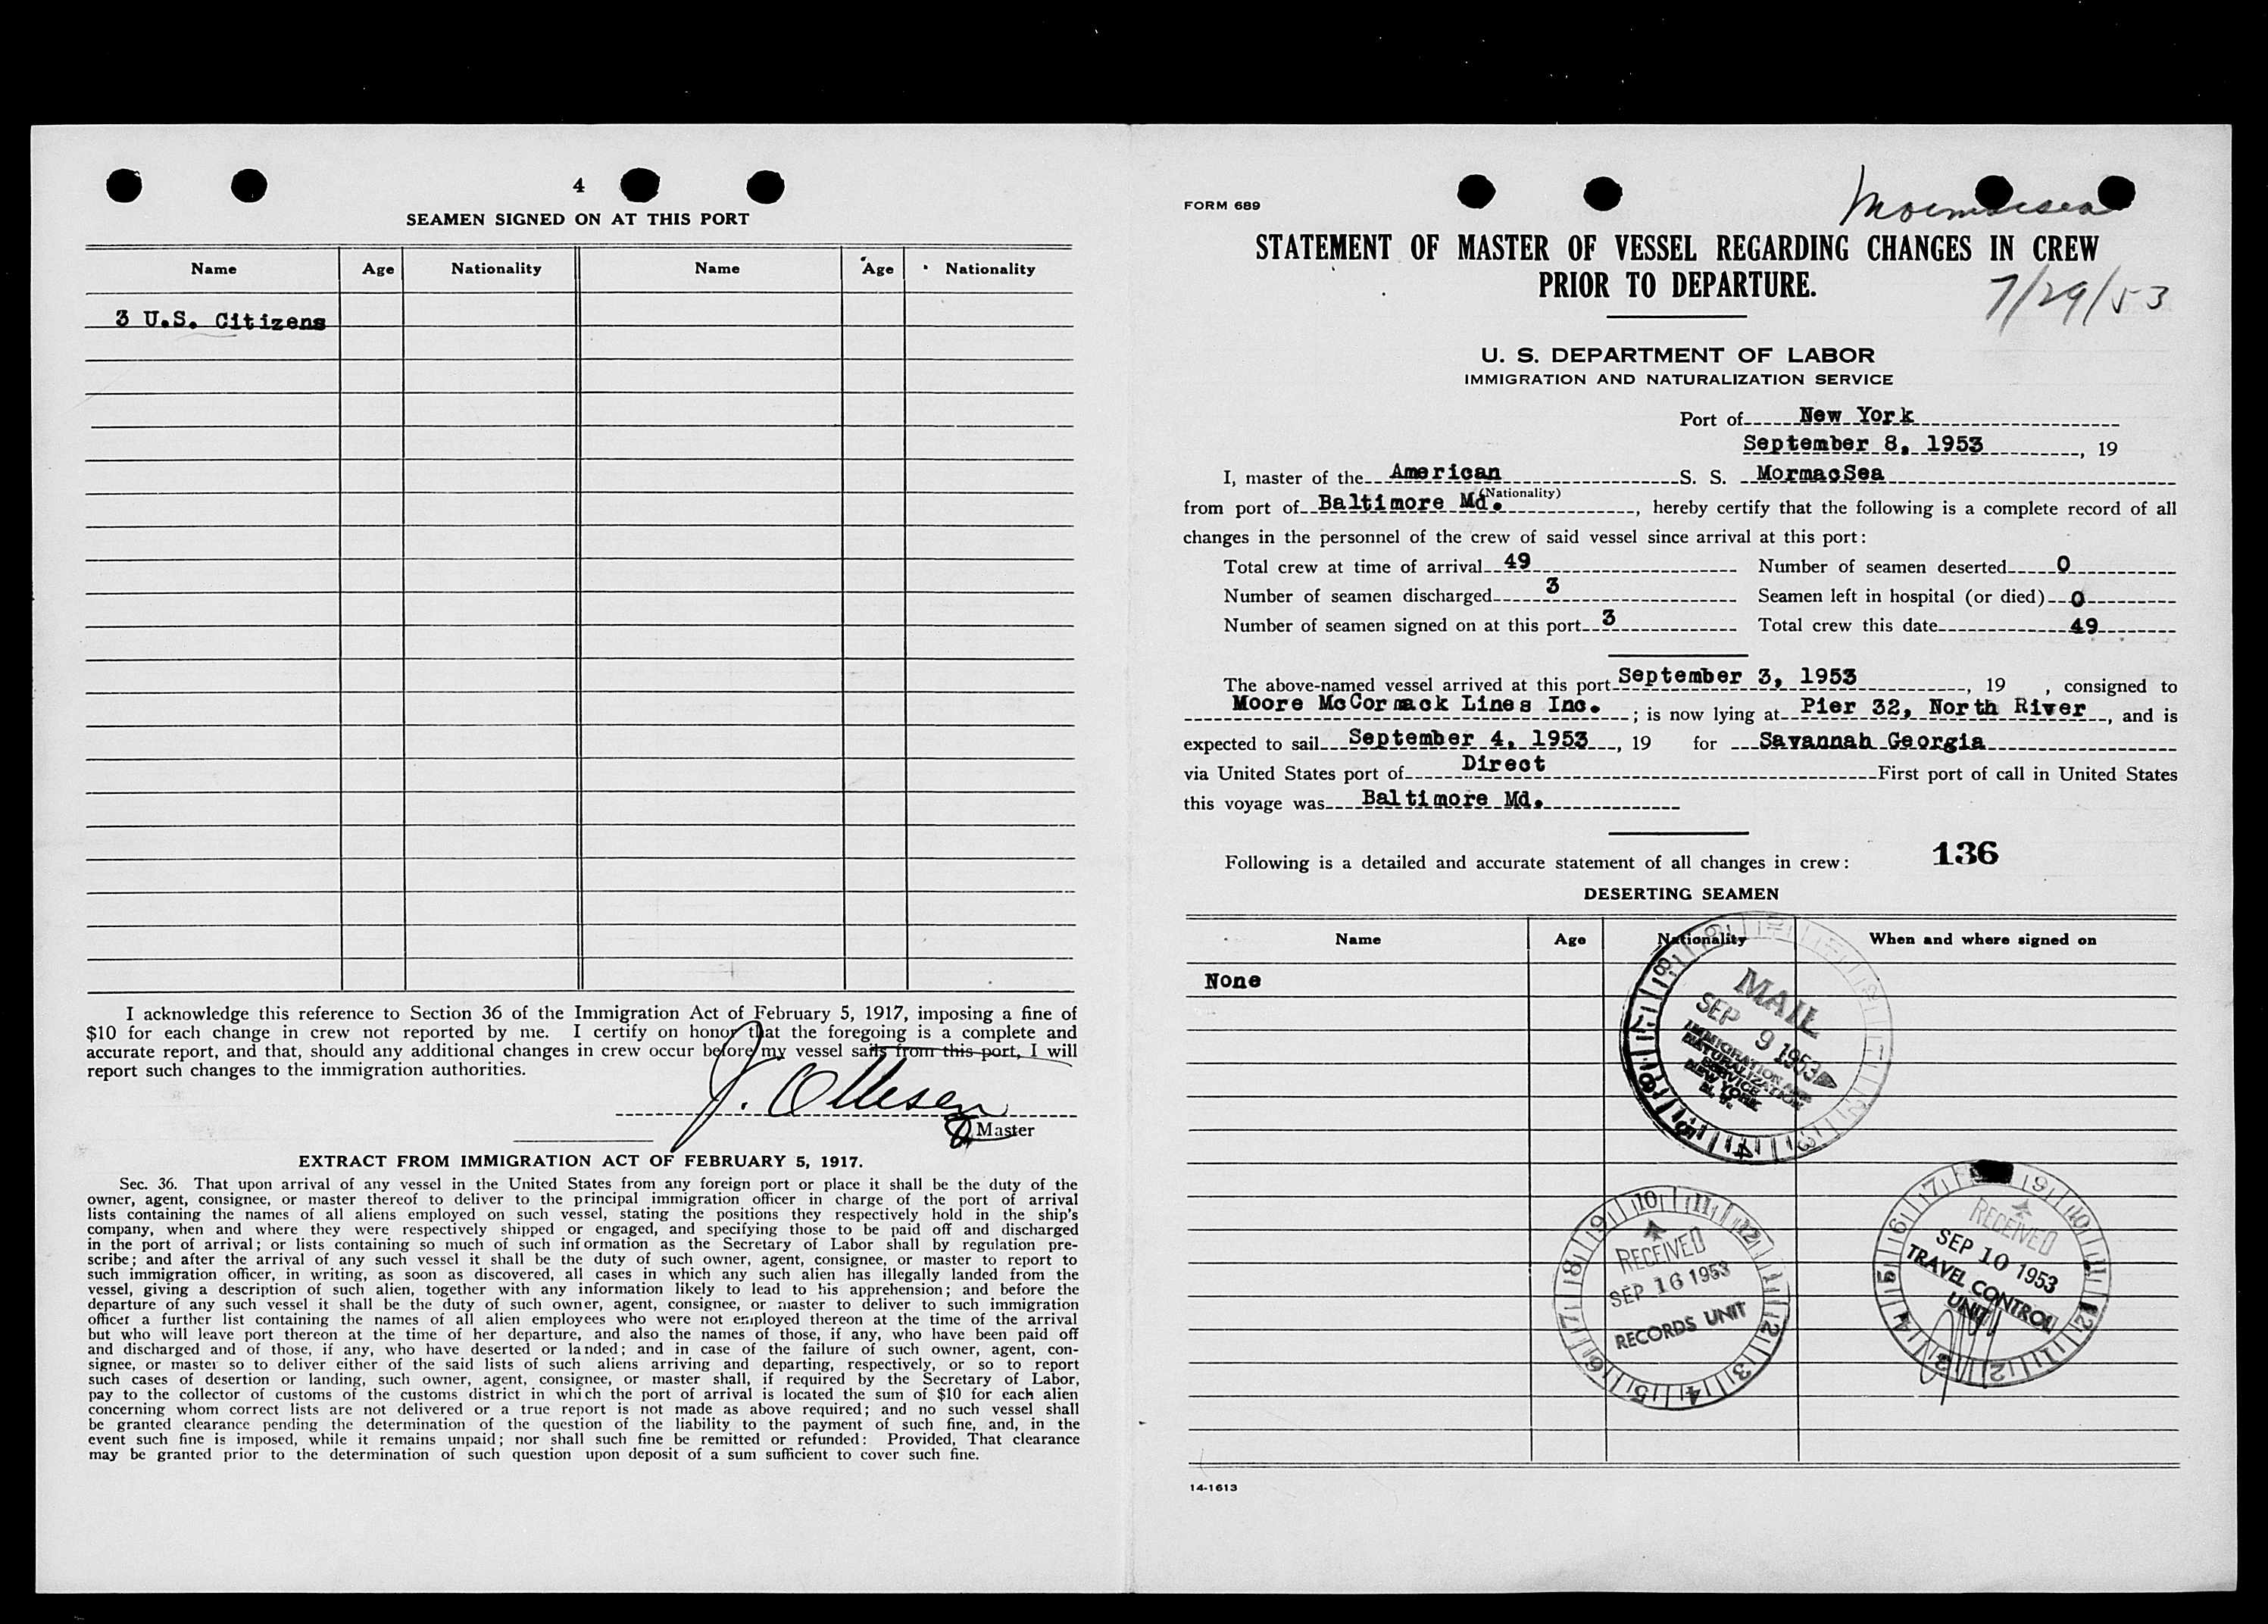 4
SEAMEN SIGNED ON AT THIS PORT
Name Age Nationality Name Age Nationality
3 U.S. Citizens
I acknowledge this reference to Section 36 of the Immigration Act of February 5, 1917, imposing a fine of
$10 for each change in crew not reported by me. I certify on honor that the foregoing is a complete and
accurate report, and that, should any additional changes in crew occur before my vessel sails from this port, I will
report such changes to the immigration authorities.
J. Ollesen
Master
EXTRACT FROM IMMIGRATION ACT OF FEBRUARY 5, 1917.
Sec. 36. That upon arrival of any vessel in the United States from any foreign port or place it shall be the duty of the
owner, agent, consignee, or master thereof to deliver to the principal immigration officer in charge of the port of arrival
lists containing the names of all aliens employed on such vessel, stating the positions they respectively hold in the ship's
company, when and where they were respectively shipped or engaged, and specifying those to be paid off and discharged
in the port of arrival; or lists containing so much of such information as the Secretary of Labor shall by regulation pre-
scribe; and after the arrival of any such vessel it shall be the duty of such owner, agent, consignee, or master to report to
such immigration officer, in writing, as soon as discovered, all cases in which any such alien has illegally landed from the
vessel, giving a description of such alien, together with any information likely to lead to his apprehension; and before the
departure of any such vessel it shall be the duty of such owner, agent, consignee, or master to deliver to such immigration
officer a further list containing the names of all alien employees who were not employed thereon at the time of the arrival
but who will leave port thereon at the time of her departure, and also the names of those, if any, who have been paid off
and discharged and of those, if any, who have deserted or landed; and in case of the failure of such owner, agent, con-
signee, or master so to deliver either of the said lists of such aliens arriving and departing, respectively, or so to report
such cases of desertion or landing, such owner, agent, consignee, or master shall, if required by the Secretary of Labor,
pay to the collector of customs of the customs district in which the port of arrival is located the sum of $10 for each alien
concerning whom correct lists are not delivered or a true report is not made as above required; and no such vessel shall
be granted clearance pending the determination of the question of the liability to the payment of such fine, and, in the
event such fine is imposed, while it remains unpaid; nor shall such fine be remitted or refunded: Provided, That clearance
may be granted prior to the determination of such question upon deposit of a sum sufficient to cover such fine.
FORM 689
Mormacsea
STATEMENT OF MASTER OF VESSEL REGARDING CHANGES IN CREW
PRIOR TO DEPARTURE.
7/29/53
U. S. DEPARTMENT OF LABOR
IMMIGRATION AND NATURALIZATION SERVICE
Port of New York
September 8, 1953, 19
I, master of the American S. S. MormacSea
(Nationality)
from port of Baltimore Md., hereby certify that the following is a complete record of all
changes in the personnel of the crew of said vessel since arrival at this port:
Total crew at time of arrival 49 Number of seamen deserted 0
Number of seamen discharged 3 Seamen left in hospital (or died) 0
Number of seamen signed on at this port 3 Total crew this date 49
The above-named vessel arrived at this port September 3, 1953, 19 , consigned to
Moore McCormack Lines Inc. ; is now lying at Pier 32, North River, and is
expected to sail September 4, 1953, 19 for Savannah Georgia
via United States port of Direct First port of call in United States
this voyage was Baltimore Md.
Following is a detailed and accurate statement of all changes in crew: 136
DESERTING SEAMEN
Name Age Nationality When and where signed on
None
MAIL
SEP 9 1953
IMMIGRATION AND
NATURALIZATION
SERVICE
NEW YORK
N. Y.
RECEIVED
SEP 16 1953
RECORDS UNIT
RECEIVED
SEP 10 1953
TRAVEL CONTROL
UNIT
14-1613